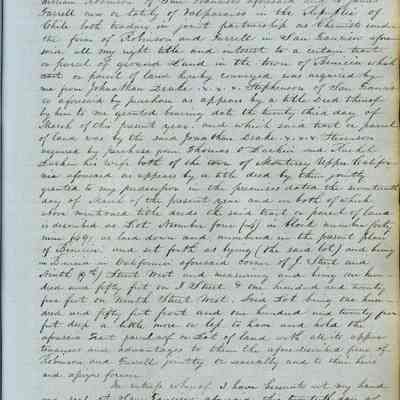 William Robinson of San Francisco aforesaid and of James
Farrell now or late of Valparaiso in the Republic of
Chile both trading in joint partnership as Chemists under
the firm of Robinson and Farrell in San Francisco afore
said all my right title and interest to a certain tract
or parcel of ground and in the town of Benicia which
or parcel of land hereby conveyed was acquired by
me from Jonathan Drake Stevenson of San Francis
co aforesaid by purchase as appears by a title deed thereof
by him to me granted bearing date the twenty third day of
March of this present year and which said tract or parcel
of land was by the said Jonathan Drake Stevenson
acquired by purchase from Thomas O Larkin and Rachel
Larkin his wife both of the town of Monterey Upper Califor
nia aforesaid as appears by a title deed by them jointly
granted to my predecessor in the premises dated the nineteenth
day of March of the present year and in both of which
above mentioned title deeds the said tract or parcel of land
is described as Lot Number four (4) in block number forty
nine (49) as laid down and numbered in the present plan
of Benicia and set forth as lying (the said lot) and being
in Benicia in California aforesaid corner of J Street and
Ninth (9th) Street West and measuring and being one hun-
dred and fifty feet on J Street & one hundred and twenty
five feet on Ninth Street West. Said Lot being one hun-
dred and fifty feet front and one hundred and twenty five
feet deep a little more or less to have and hold the
aforesaid tract parcel or Lot of land with all its appur
tenances and advantages to them the aforedescribed firm of
Robinson and Farrell jointly or severally and to their heirs
and assigns forever
In witness whereof I have hereunto set my hand
and seal at San Francisco aforesaid the twentieth day of